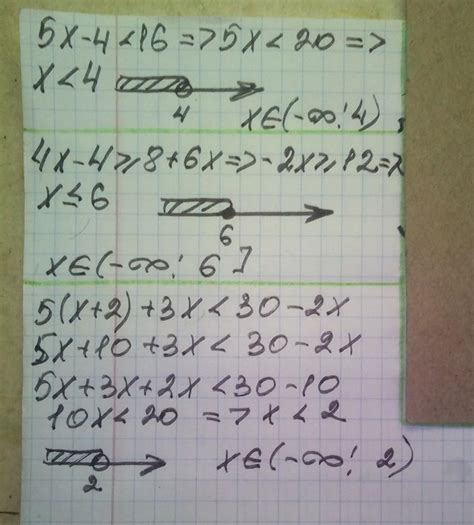 5x-4<16=>5x<20=>
x<4
4
x∈(-∞; 4)
4x-4⩾8+6x=>-2x⩾12=>
x≤6
6
x∈(-∞; 6]
5(x+2)+3x<30-2x
5x+10+3x<30-2x
5x+3x+2x<30-10
10x<20 =>x<2
2
x∈(-∞; 2)